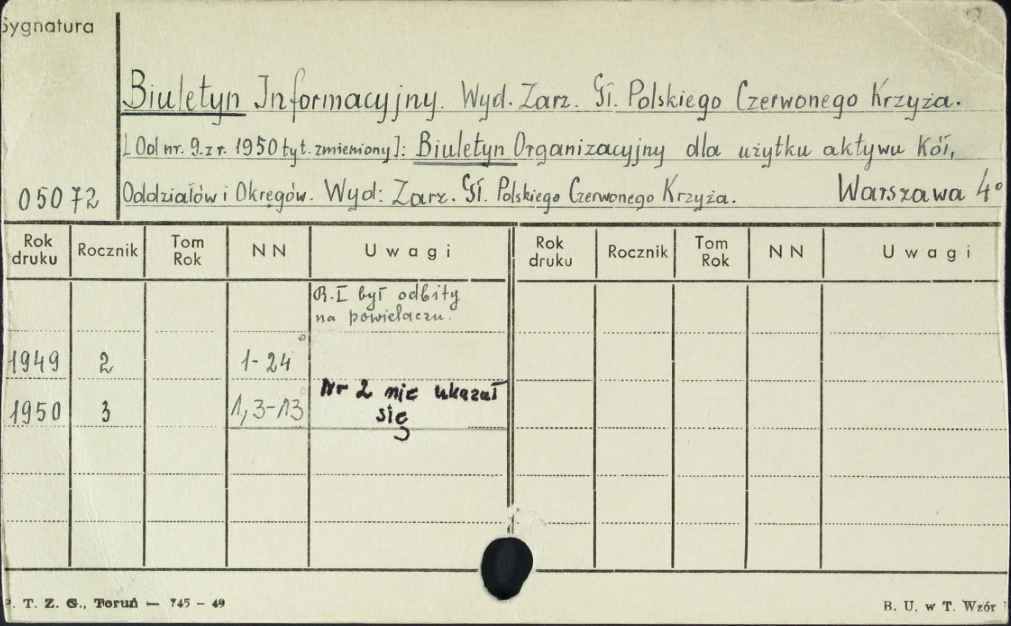 Sygnatura
Biuletyn Informacyjny. Wyd. Zarz. Gł. Polskiego Czerwonego Krzyża.
[Od nr. 9. z r. 1950 tyt. zmieniony]: Biuletyn Organizacyjny dla użytku aktywu Kół,
05072 Oddziałów i Okręgów. Wyd: Zarz. Gł. Polskiego Czerwonego Krzyża. Warszawa 4°
Rok druku Rocznik Tom Rok NN Uwagi Rok druku Rocznik Tom Rok NN Uwagi
R. I był odbity
na powielaczu.
1949 2 1-24
1950 3 1,3-13 Nr 2 nie ukazał
się
P. T. Z. G., Toruń — 745 - 49 B. U. w T. Wzór